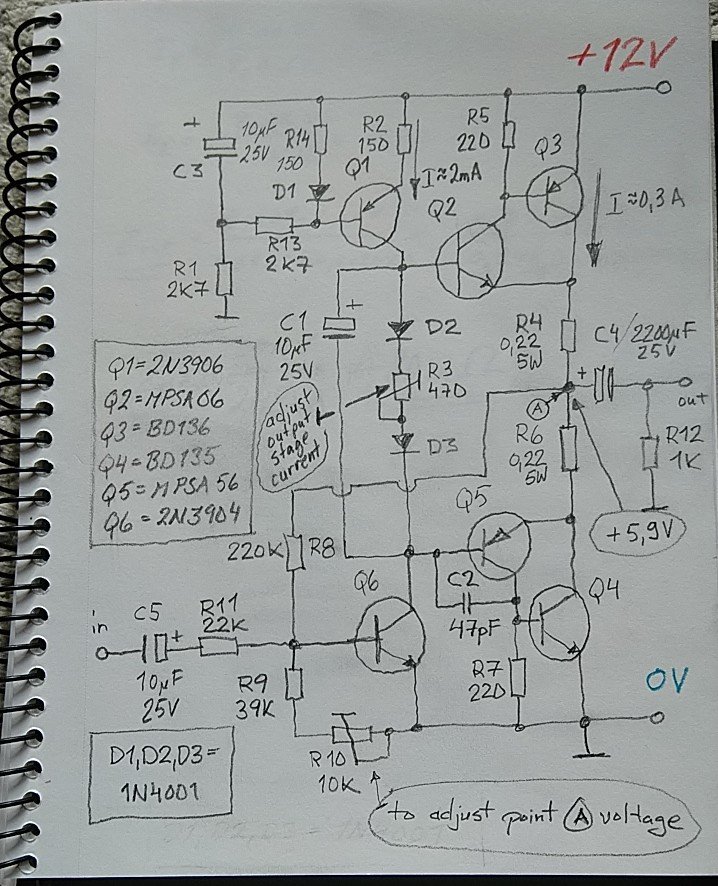 +12V
+
10µF
25V
C3
R14
150
R2
150
R5
220
Q3
Q1
I≈2mA
D1
Q2
I≈0,3A
R13
2K7
R1
2K7
+
C1
10µF
25V
D2
R4
0,22
5W
C4/2200µF
25V
+
R3
470
out
A
Q1=2N3906
Q2=MPSA06
Q3=BD136
Q4=BD135
Q5=MPSA56
Q6=2N3904
adjust
output
stage
current
D3
R6
0,22
5W
R12
1K
+5,9V
Q5
220K
R8
Q6
C2
47pF
Q4
in
C5
+
R11
22K
10µF
25V
R9
39K
R7
220
0V
D1,D2,D3=
1N4001
R10
10K
to adjust point A voltage